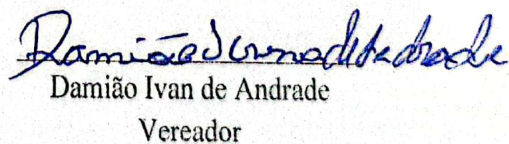 Damião Ivan de Andrade
Damião Ivan de Andrade
Vereador